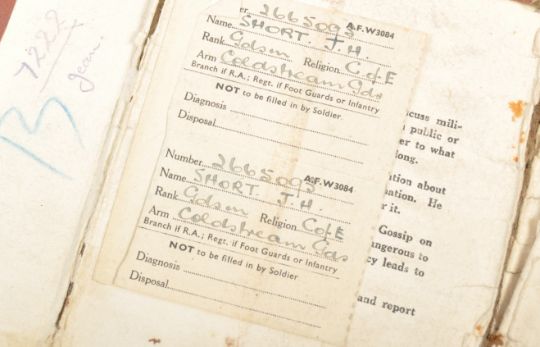 7222
Jean.
B
er 2665095
A.F.W3084
Name SHORT J.H.
Rank Gdsm Religion C of E
Arm Coldstream Gds
Branch if R.A.; Regt. if Foot Guards or Infantry
NOT to be filled in by Soldier
Diagnosis
Disposal
Number 2665095
A.F.W3084
Name SHORT J.H.
Rank Gdsm Religion C of E
Arm Coldstream Gds
Branch if R.A.; Regt. if Foot Guards or Infantry
NOT to be filled in by Soldier
Diagnosis
Disposal
cuss mili-
public or
er to what
long.
tion about
ation. He
r it.
Gossip on
angerous to
cy leads to
and report